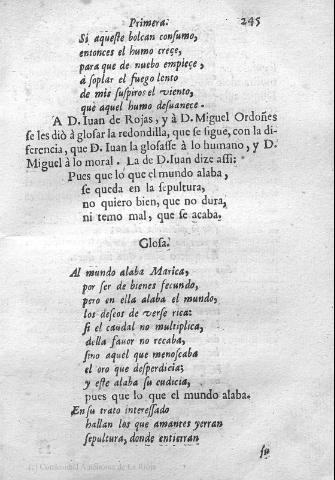 Primera. 245
Si aqueste bolcan consumo,
entonces el humo creçe,
para que de nuebo empieçe,
à soplar el fuego lento
de mis suspiros el viento,
que aquel humo desuanece.
A D. Iuan de Rojas, y à D. Miguel Ordoñes
se les diò à glosar la redondilla, que se sigue, con la di-
ferencia, que D. Iuan la glosasse à lo humano, y D.
Miguel à lo moral. La de D. Iuan dize assi:
Pues que lo que el mundo alaba,
se queda en la sepultura,
no quiero bien, que no dura,
ni temo mal, que se acaba.
Glosa.
Al mundo alaba Marica,
por ser de bienes fecundo,
pero en ella alaba el mundo,
los deseos de verse rica:
si el caudal no multiplica,
della fauor no recaba,
sino aquel que menoscaba
el oro que desperdicia;
y este alaba su cudicia,
pues que lo que el mundo alaba.
En su trato interessado
hallan los que amantes yerran
sepultura, donde entierran
su
(c) Comunidad Autónoma de La Rioja